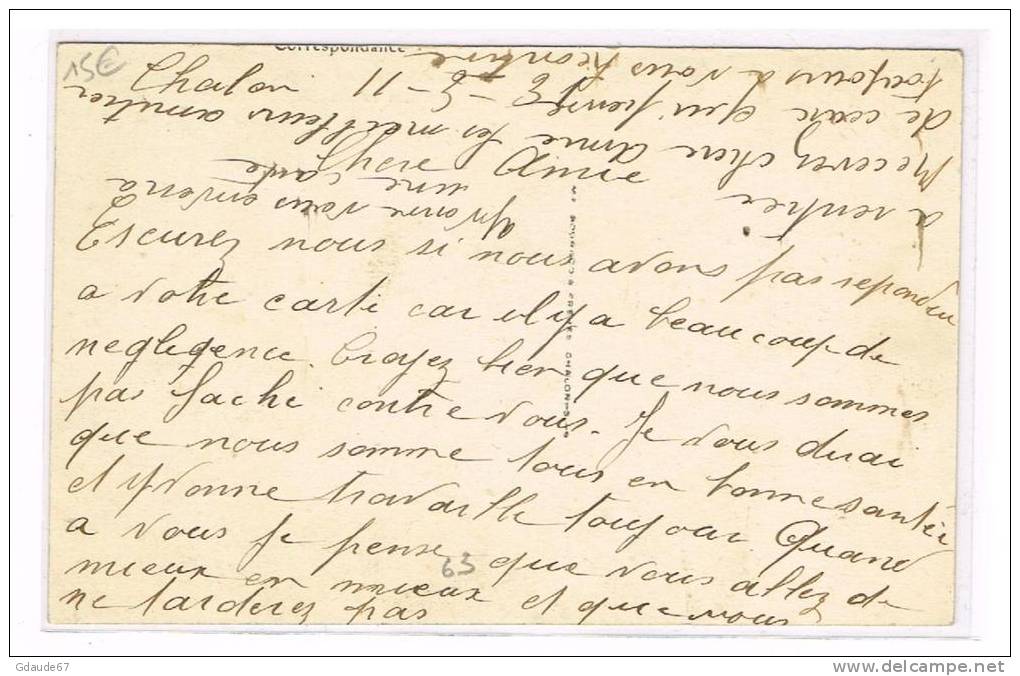 15€
Correspondance
Chalon 11-5-
Chere Amie
Escurez nous si nous avons pas repondu
a votre carte car il y a beaucoup de
negligence. Croyez bien que nous sommes
pas faché contre vous. Je vous dirai
que nous somme tous en bonne santée
et Yvonne travaille toujour Quand
a vous je pense que vous allez de
mieux en mieux et que vous
ne tarderez pas
63
a rentrer
Recevez chere amie les meilleurs amitier
de ceux qui pense
toujours a vous
Yvonne vous enverra
une carte
Gdaude67
http://www.delcampe.net